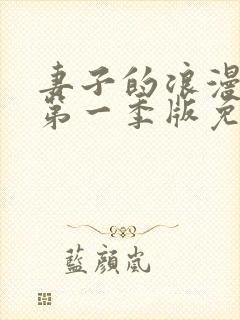 妻子的浪漫
第一季版免
藍顏嵐